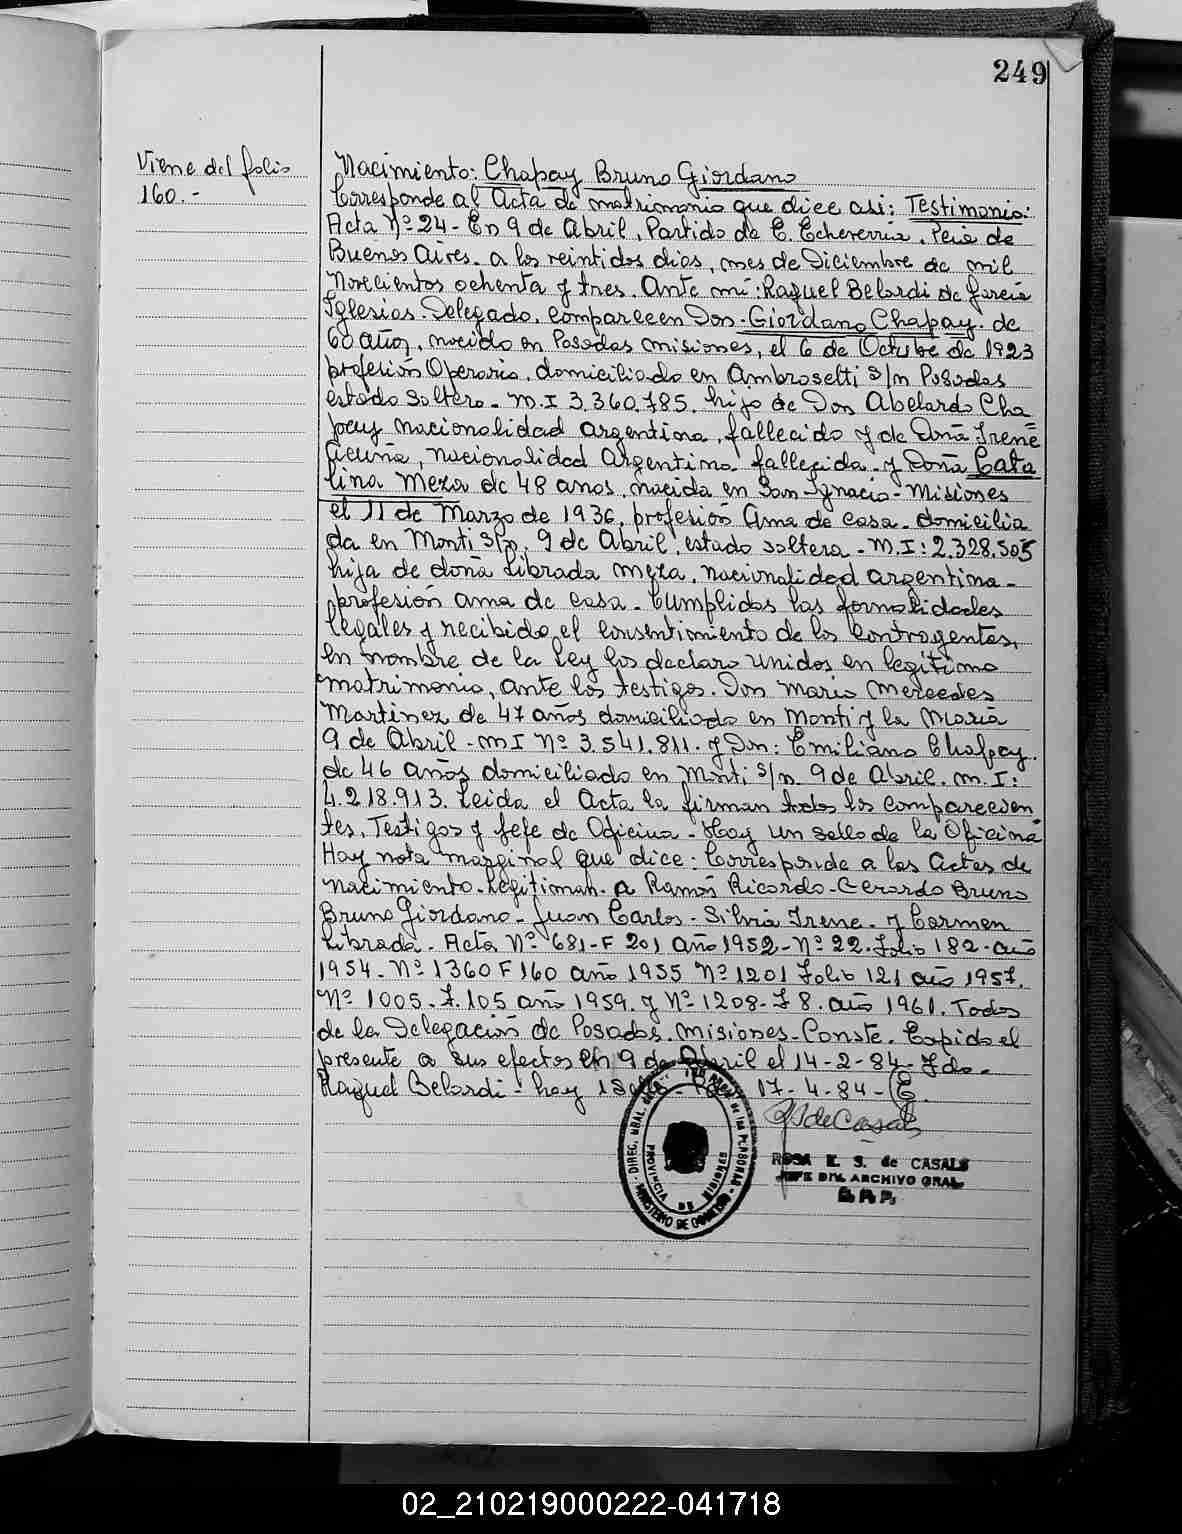 249
Viene del folio
160.-
Nacimiento: Chapay Bruno Giordano
Corresponde al Acta de matrimonio que dice asi: Testimonio:
Acta Nº 24- En 9 de Abril, Partido de E. Echeverria. Pcia de
Buenos Aires. a los veintidos dias, mes de Diciembre de mil
Novecientos ochenta y tres. Ante mi: Raquel Belardi de Garcia
Iglesias. Delegado. comparecen Don. Giordano Chapay. de
60 años, nacido en Posadas misiones, el 6 de Octubre de 1923
profesión Operario. domiciliado en Ambrosetti s/n Posadas
estado soltero. M.I 3.360.785. hijo de Don Abelardo Cha
pay nacionalidad argentina, fallecido y de Doña Irene
Acuña, nacionalidad argentina fallecida. y Doña Cata
lina Meza de 48 anos, nacida en San Ignacio - Misiones
el 11 de Marzo de 1936, profesión Ama de casa. domicilia
da en Monti s/n. 9 de Abril, estado soltera - M.I: 2.328.505
hija de doña Librada meza, nacionalidad argentina -
profesión ama de casa. Cumplidas las formalidades
legales y recibido el consentimiento de los contrayentes,
en nombre de la Ley los declaro unidos en legitimo
matrimonio, ante los testigos. Don Mario Mercedes
Martinez de 47 años domiciliado en Monti y la Maria
9 de Abril - M I Nº 3.541.811. y Don: Emiliano Chapay.
de 46 años domiciliado en Monti s/n. 9 de Abril. M. I:
4.218.913. Leida el Acta la firman todos los comparecien
tes, Testigos y Jefe de Oficina - Hay un sello de la Oficina
Hay nota marginal que dice: Corresponde a las Actas de
nacimiento. Legitiman. a Ramón Ricardo - Gerardo Bruno
Bruno Giordano - Juan Carlos - Silvia Irene - y Carmen
Librada. Acta Nº 681- F 201 año 1952 - Nº 22. Folio 182. año
1954. Nº 1360 F 160 año 1955 Nº 1201 Folio 121 año 1957.
Nº 1005. F. 105 año 1959. y Nº 1208- F 8. año 1961. Todos
de la Delegación de Posadas. misiones - Conste. Expido el
presente a sus efectos en 9 de Abril el 14-2-84 - Fdo.
Raquel Belardi - hay 1 Sello - 17-4-84-
DIREC. GRAL. DE LAS PERSONAS
PROVINCIA DE MISIONES
MINISTERIO DE GOBIERNO
ROSA E. S. de CASALS
JEFE DIV. ARCHIVO GRAL.
02_210219000222-041718